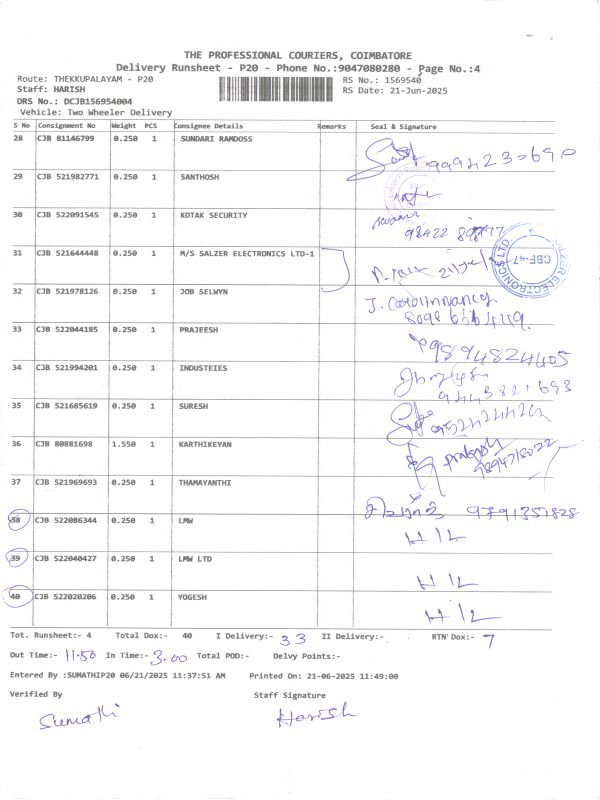 THE PROFESSIONAL COURIERS, COIMBATORE
Delivery Runsheet - P20 - Phone No.:9047080280 - Page No.:4
Route: THEKKUPALAYAM - P20 RS No.: 1569540
Staff: HARISH RS Date: 21-Jun-2025
DRS No.: DCJB156954004
Vehicle: Two Wheeler Delivery
S No Consignment No Weight PCS Consignee Details Remarks Seal & Signature
28 CJB 81146799 0.250 1 SUNDARI RAMDOSS 9994230690
29 CJB 521982771 0.250 1 SANTHOSH
30 CJB 522091545 0.250 1 KOTAK SECURITY
31 CJB 521644448 0.250 1 M/S SALZER ELECTRONICS LTD-1 CBF-47
32 CJB 521978126 0.250 1 JOB SELWYN J. Carolin Nancy
33 CJB 522044185 0.250 1 PRAJEESH 9894824405
34 CJB 521994201 0.250 1 INDUSTEIES 9443821693
35 CJB 521685619 0.250 1 SURESH
36 CJB 80881698 1.550 1 KARTHIKEYAN prakash
37 CJB 521969693 0.250 1 THAMAYANTHI 9791351828
38 CJB 522086344 0.250 1 LMW H IL
39 CJB 522040427 0.250 1 LMW LTD H IL
40 CJB 522020206 0.250 1 YOGESH H IL
Tot. Runsheet:- 4 Total Dox:- 40 I Delivery:- 33 II Delivery:- RTN Dox:- 7
Out Time:- 11.50 In Time:- 3.00 Total POD:- Delvy Points:-
Entered By :SUMATHIP20 06/21/2025 11:37:51 AM Printed On: 21-06-2025 11:49:00
Verified By Staff Signature
Sumathi Harish